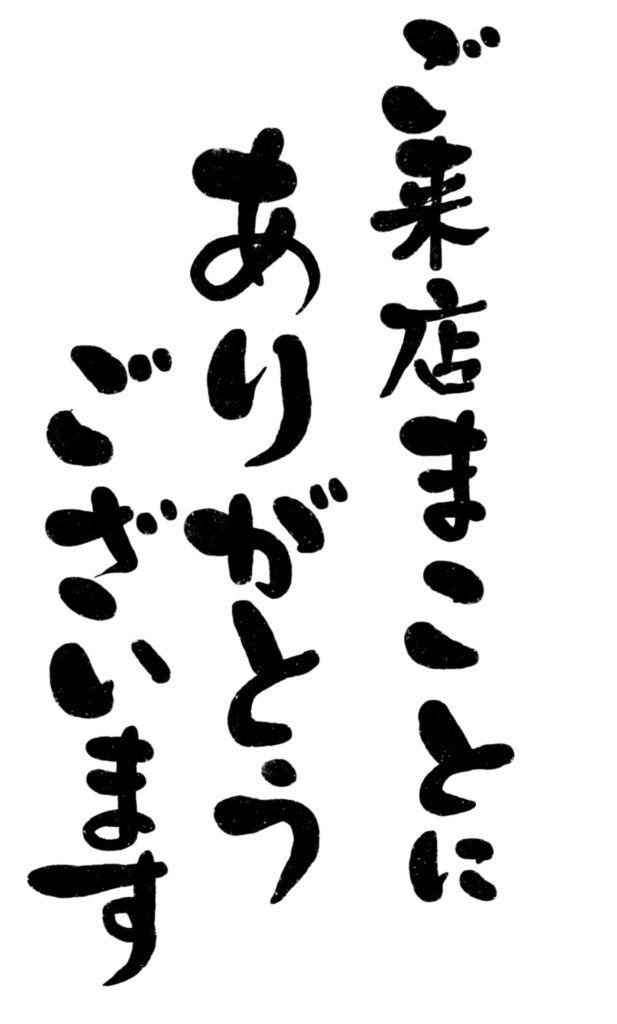 ご来店まことに
ありがとう
ございます